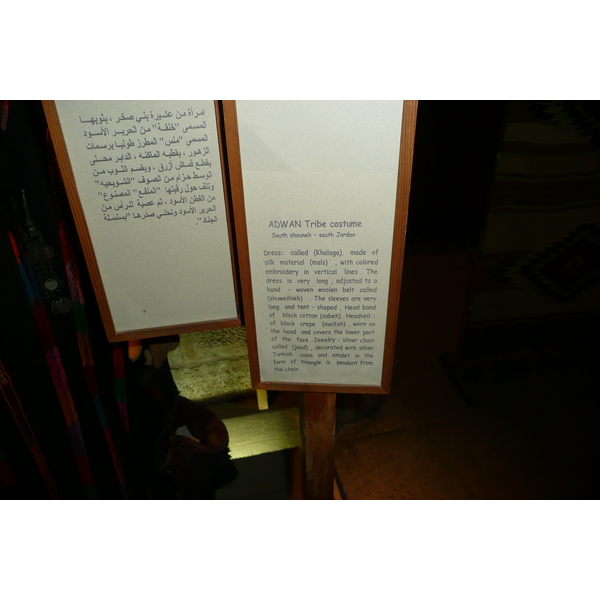 امرأة من عشيرة بني صخر ، بثوبهـا
المسمى "خلقة" من الحرير الأسود
المسمى "ملس" المطرز طوليا برسمات
الزهور ، بقطبه الماكنه ، الداير محـلى
بقطع قماش أزرق ، ويقسم الثوب مـن
الوسط حزام من الصوف "الشويحيه"
وتلف حول رقبتها "الملفع" المصنوع
من القطن الأسود ، ثم عصبة للرأس من
الحرير الأسود وتحلي صدرها "بسلسلة
الجناد".
ADWAN Tribe costume
South shouneh – south Jordan
Dress: called (Khalaga), made of
silk material (mals) , with colored
embroidery in vertical lines . The
dress is very long , adjusted to a
hand - woven woolen belt called
(shuweihieh) . The sleeves are very
long and tent - shaped , Head band
of black cotton (asbeh). Headveil :
of black crepe (melfeh) , worn on
the head and covers the lower part
of the face .Jewelry : silver chain
called (jnad) , decorated with silver
Turkish coins and amulet in the
form of triangle is pendant from
the chain .